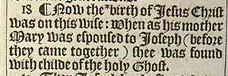 18 ¶ Now the birth of Jesus Christ
was on this wise: when as his mother
Mary was espoused to Joseph (before
they came together) shee was found
with childe of the holy Ghost.